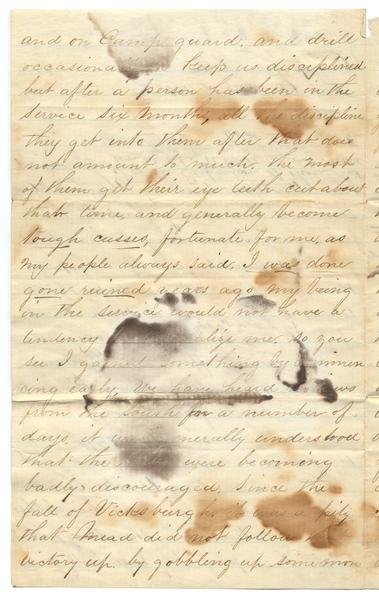 and on Camp guard. and drill
occasiona keep us disciplined
but after a person has been in the
service six months, all the discipline
they get into them after that does
not amount to much. the most
of them get their eye teeth cut about
that time, and generally become
tough cusses, fortunate for me, as
my people always said, I was done
gone ruined years ago, my being
in the service would not have a
tendency me. so you
see I gained something by commen
cing early. We have heard news
from the South for a number of
days, it generally understood
that the were becoming
badly discouraged, since the
fall of Vicksburgh. It was a pity
that Mead did not follow
victory up by gobbling up some mon